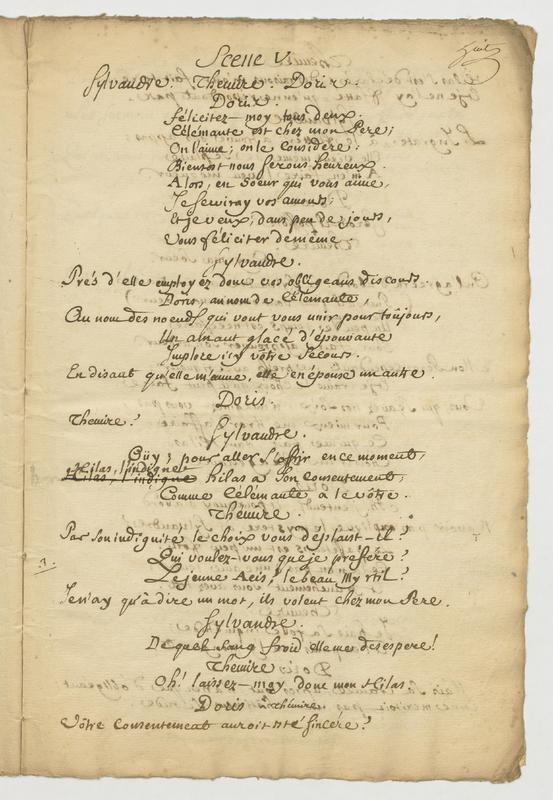 Scene V.
huit
Sylvandre. Themire. Doris.
Doris.
félicitez-moy tous deux.
Célémante est chez mon Pere;
On l'aime; on le considére:
Bientost nous serons heureux.
Alors, en Soeur qui vous aime,
Je serviray vos amours;
Et je veux, dans peu de jours,
Vous féliciter de même.
Sylvandre.
Prés d'elle employez donc vos obligeans discours
Doris, au nom de Célemante,
Au nom des noeuds qui vont vous unir pour toûjours,
Un amant glacé d'épouvante
Implore icy vôtre Secours.
En disant qu'elle m'aime, elle en épouse un autre
Doris.
Themire?
Sylvandre.
Oüy; pour aller l'offrir en ce moment,
Hilas, l'indigne
Hilas, l'indigne hilas a son consentement;
Comme Célémante a le vôtre.
Themire.
Par son indignité le choix vous déplaist-il?
Qui voulez-vous que je préfére?
Le jeune Acis, le beau Myrtil?
Je n'ay qu'à dire un mot, ils volent chez mon Pere.
Sylvandre.
De quel sang froid elle me desespere!
Themire
Oh! laissez-moy donc mon Hilas
Doris à Themire.
Vôtre consentement auroit été sincére?